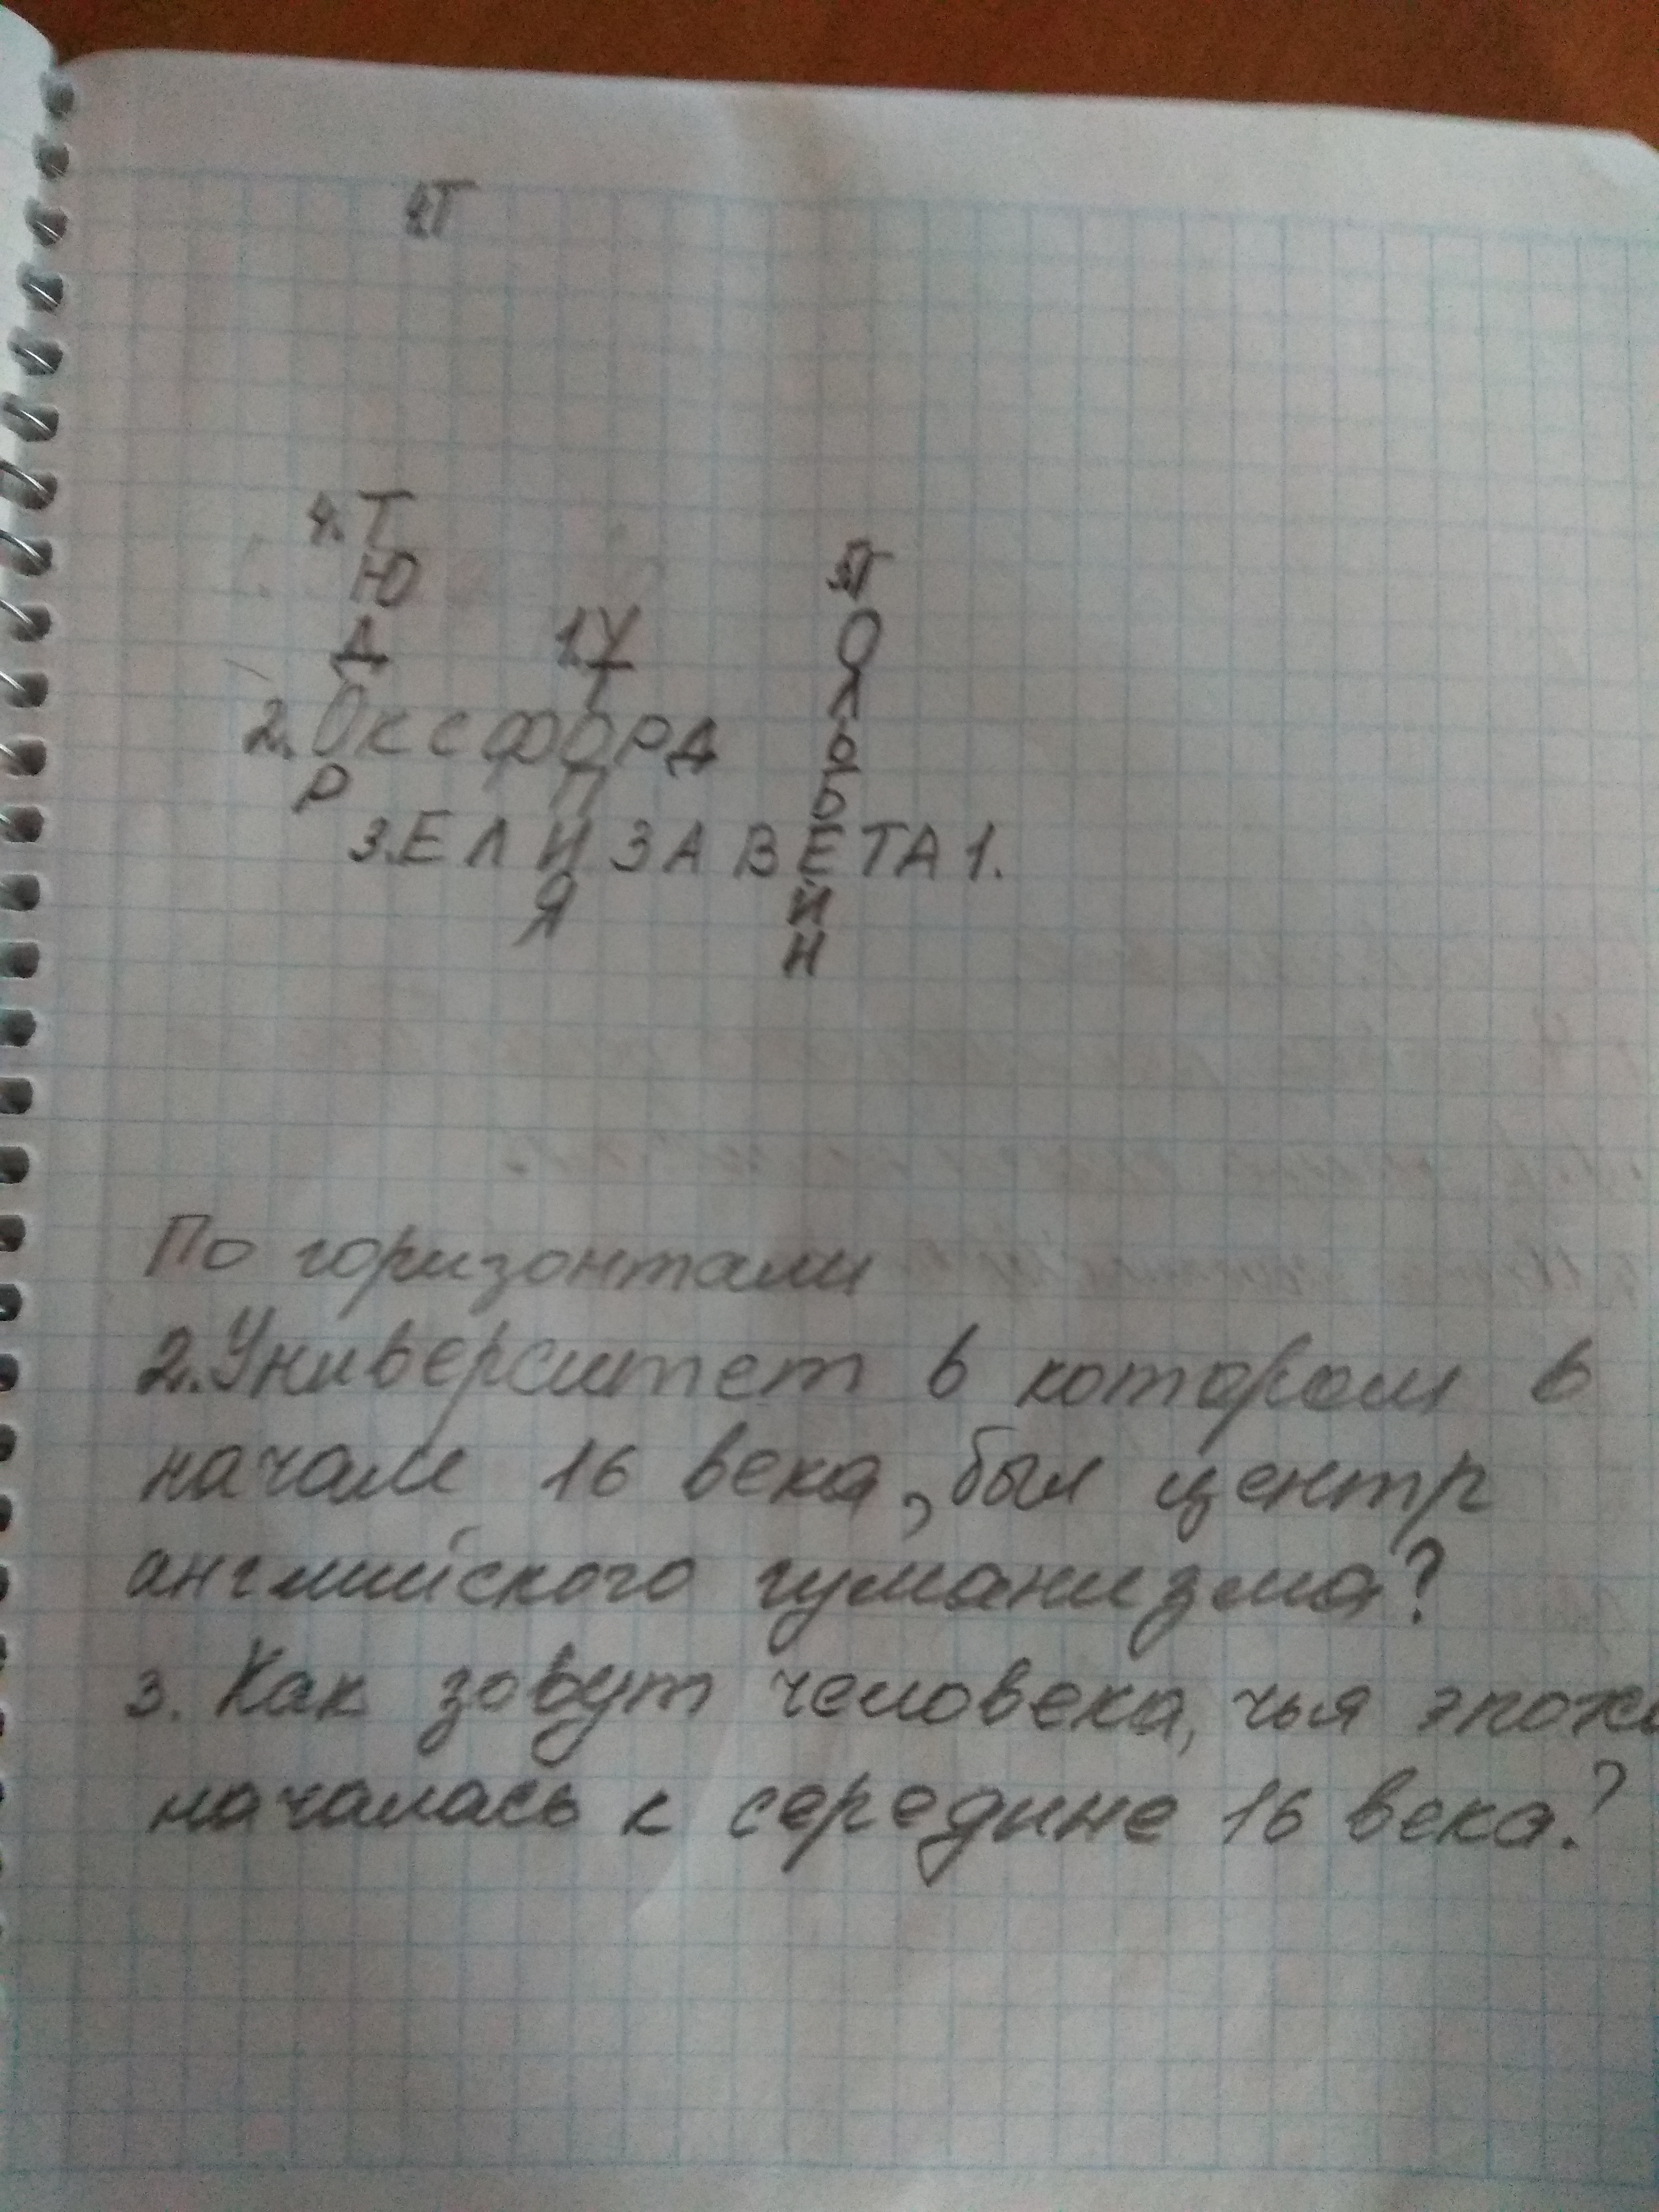 4.Т
4.Т
Ю
5.Г
Д
1.У
О
Т
Л
2.ОКСФОРД
Ь
Р
П
Б
3.ЕЛИЗАВЕТА 1.
Я
Й
Н
По горизонтали
2.Университет в котором в
начале 16 века, был центр
английского гуманизма?
3. Как зовут человека, чья эпоха
началась к середине 16 века?